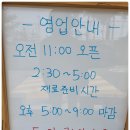 - 영업안내 -
오전 11:00 오픈
2:30 ~ 5:00
재료준비시간
오후 5:00~9:00 마감